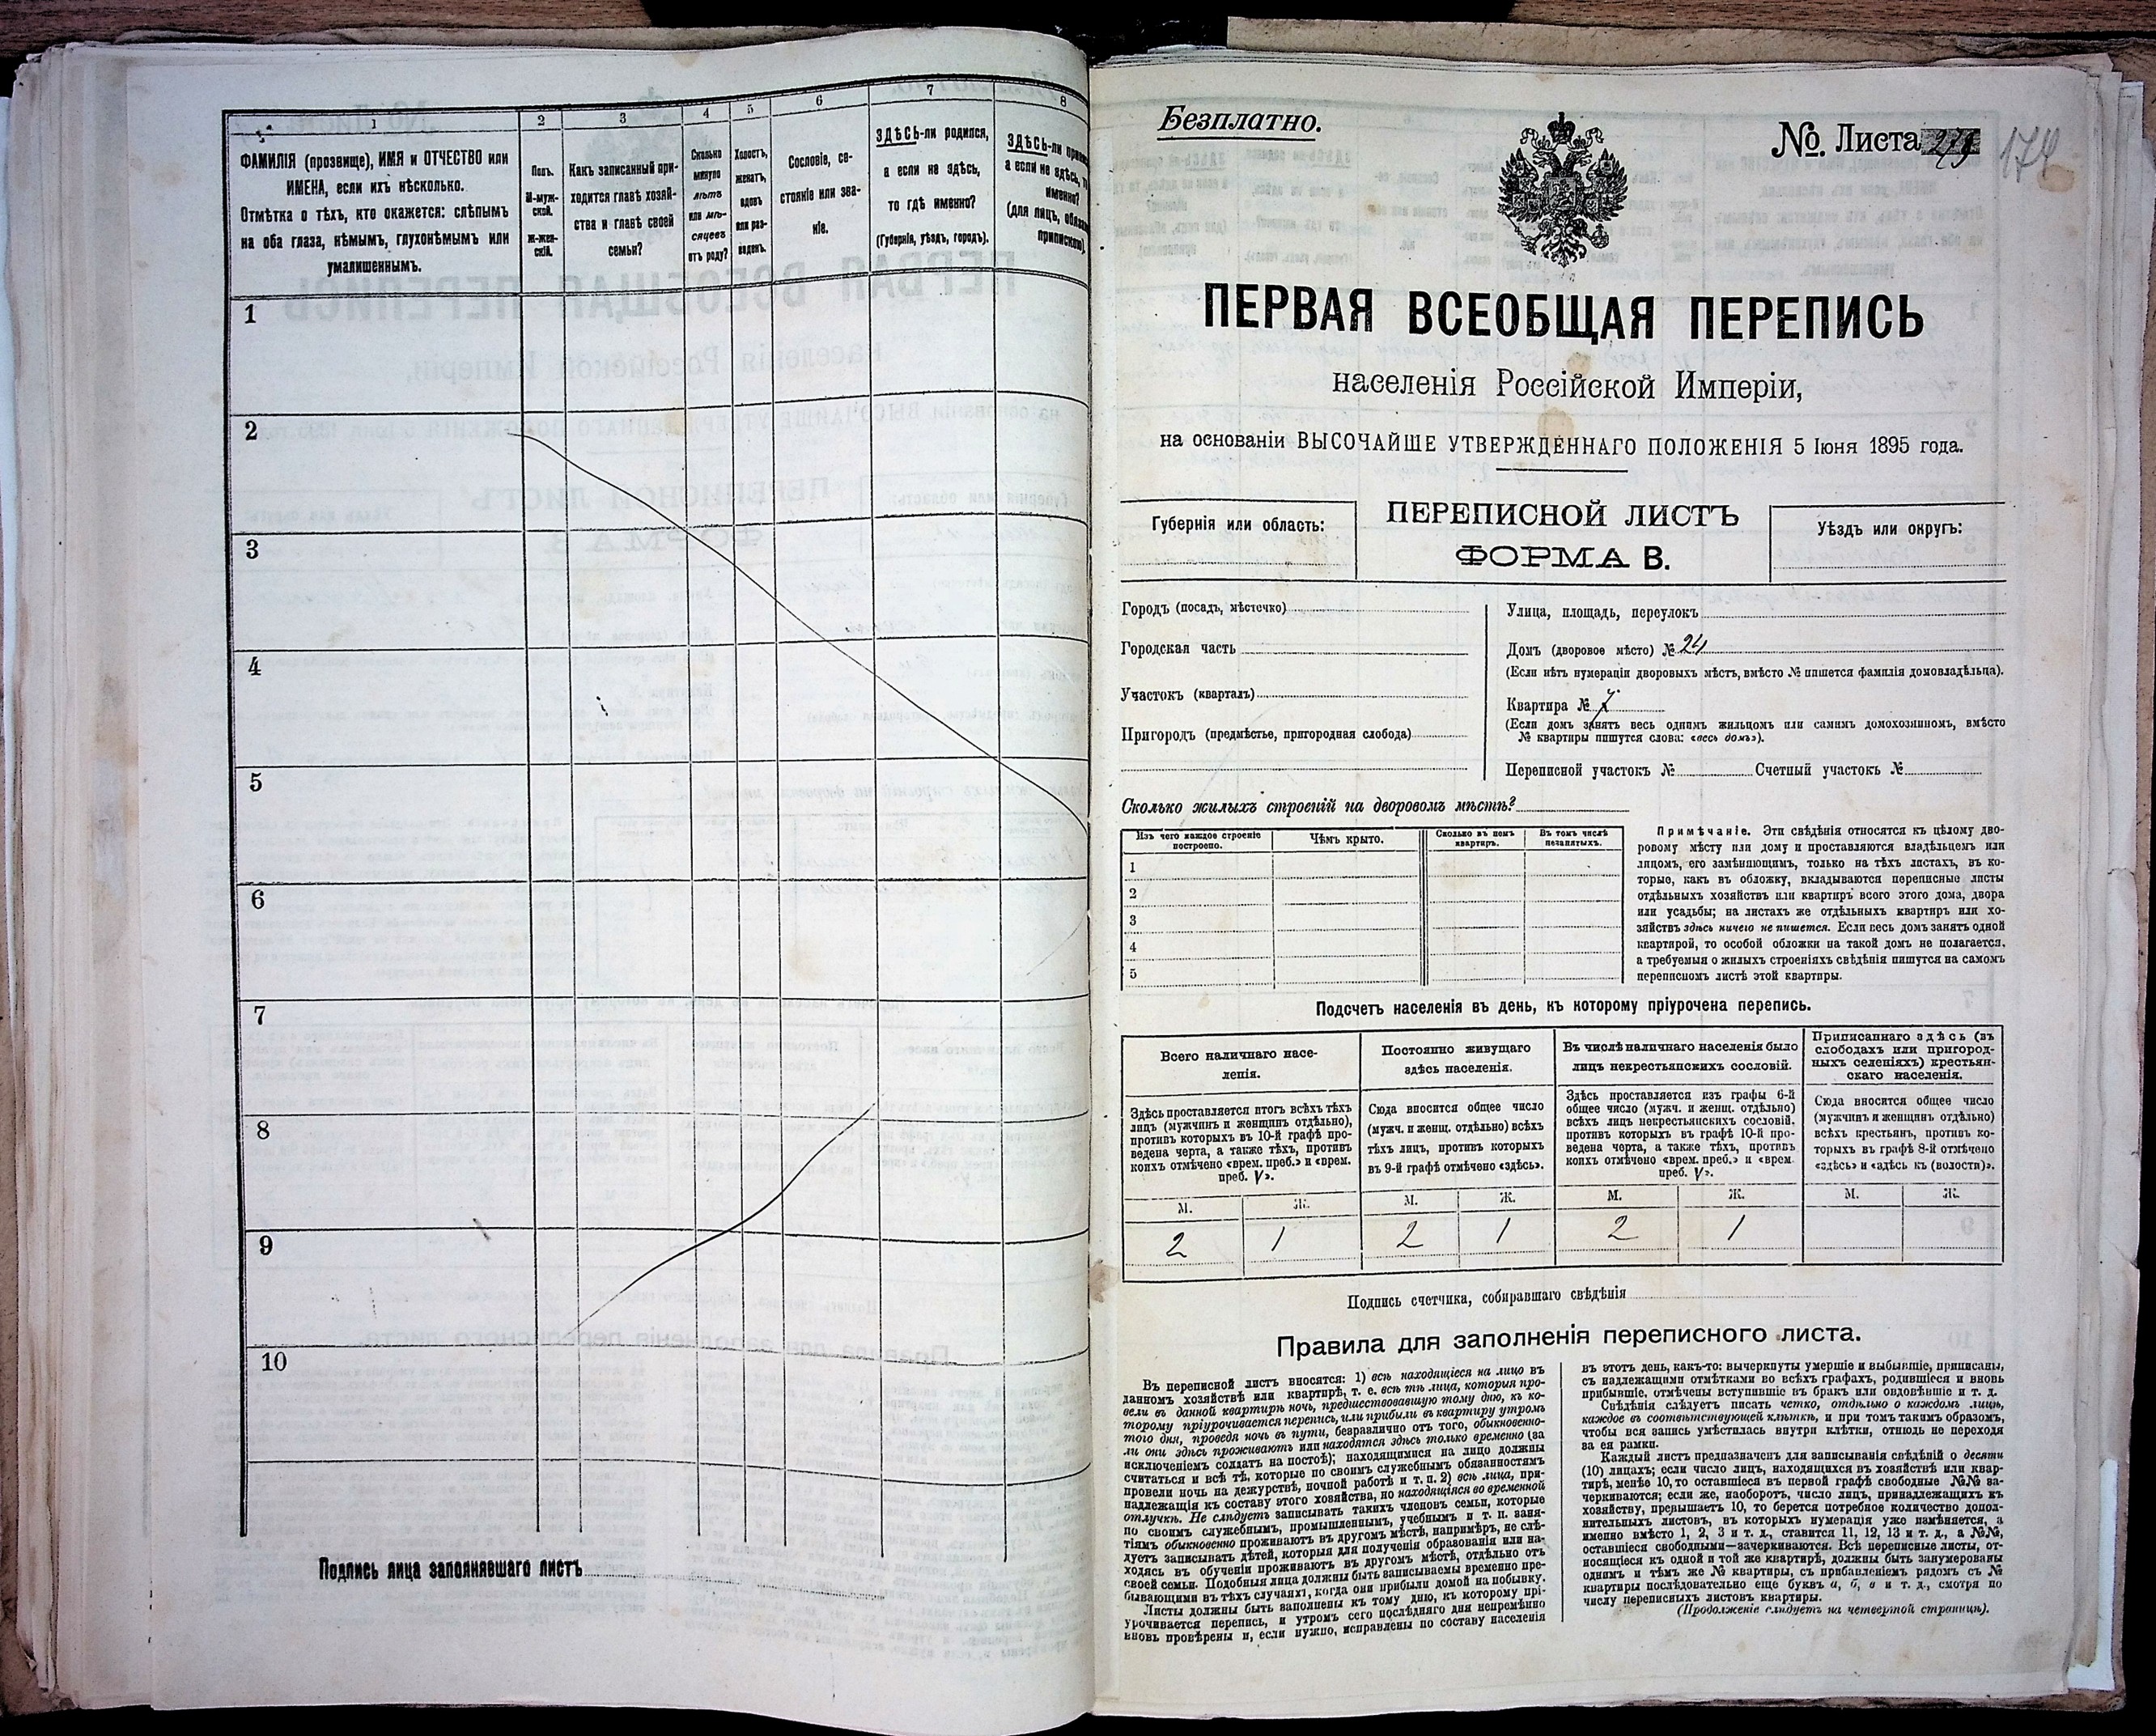 1
ФАМИЛІЯ (прозвище), ИМЯ и ОТЧЕСТВО или
ИМЕНА, если ихъ нѣсколько.
Отмѣтка о тѣхъ, кто окажется: слѣпымъ
на оба глаза, нѣмымъ, глухонѣмымъ или
умалишеннымъ.
2
Полъ.
М-муж-
ской.
Ж-жен-
скій.
3
Какъ записанный при-
ходится главѣ хозяй-
ства и главѣ своей
семьи?
4
Сколько
минуло
лѣтъ
или мѣ-
сяцевъ
отъ роду?
5
Холостъ,
женатъ,
вдовъ
или раз-
веденъ.
6
Сословіе, со-
стояніе или зва-
ніе.
7
ЗДѢСЬ-ли родился,
а если не здѣсь,
то гдѣ именно?
(Губернія, уѣздъ, городъ).
8
ЗДѢСЬ-ли
а если не здѣсь,
именно?
(для лицъ,
припискою).
1
2
3
4
5
6
7
8
9
10
Подпись лица заполнявшаго листъ
Безплатно.
№ Листа 279
174
ПЕРВАЯ ВСЕОБЩАЯ ПЕРЕПИСЬ
населенія Россійской Имперіи,
на основаніи ВЫСОЧАЙШЕ УТВЕРЖДЕННАГО ПОЛОЖЕНІЯ 5 Іюня 1895 года.
Губернія или область:
ПЕРЕПИСНОЙ ЛИСТЪ
ФОРМА В.
Уѣздъ или округъ:
Городъ (посадъ, мѣстечко)
Городская часть
Участокъ (кварталъ)
Пригородъ (предмѣстье, пригородная слобода)
Улица, площадь, переулокъ
Домъ (дворовое мѣсто) № 24
(Если нѣтъ нумераціи дворовыхъ мѣстъ, вмѣсто № пишется фамилія домовладѣльца).
Квартира №
(Если домъ занятъ весь однимъ жильцомъ или самимъ домохозяиномъ, вмѣсто
№ квартиры пишутся слова: «весь домъ»).
Переписной участокъ № Счетный участокъ №
Сколько жилыхъ строеній на дворовомъ мѣстѣ?
Изъ чего каждое строеніе
построено.
Чѣмъ крыто.
Сколько въ немъ
квартиръ.
Въ томъ числѣ
незанятыхъ.
1
2
3
4
5
Примѣчаніе. Эти свѣдѣнія относятся къ цѣлому дво-
ровому мѣсту или дому и проставляются владѣльцемъ или
лицомъ, его замѣняющимъ, только на тѣхъ листахъ, въ ко-
торые, какъ въ обложку, вкладываются переписные листы
отдѣльныхъ хозяйствъ или квартиръ всего этого дома, двора
или усадьбы; на листахъ же отдѣльныхъ квартиръ или хо-
зяйствъ здѣсь ничего не пишется. Если весь домъ занятъ одной
квартирой, то особой обложки на такой домъ не полагается,
а требуемыя о жилыхъ строеніяхъ свѣдѣнія пишутся на самомъ
переписномъ листѣ этой квартиры.
Подсчетъ населенія въ день, къ которому пріурочена перепись.
Всего наличнаго насе-
ленія.
Здѣсь проставляется итогъ всѣхъ тѣхъ
лицъ (мужчинъ и женщинъ отдѣльно),
противъ которыхъ въ 10-й графѣ про-
ведена черта, а также тѣхъ, противъ
коихъ отмѣчено «врем. преб.» и «врем.
преб. V».
М. Ж.
2 1
Постоянно живущаго
здѣсь населенія.
Сюда вносится общее число
(мужч. и женщ. отдѣльно) всѣхъ
тѣхъ лицъ, противъ которыхъ
въ 9-й графѣ отмѣчено «здѣсь».
М. Ж.
2 1
Въ числѣ наличнаго населенія было
лицъ некрестьянскихъ сословій.
Здѣсь проставляется изъ графы 6-й
общее число (мужч. и женщ. отдѣльно)
всѣхъ лицъ некрестьянскихъ сословій,
противъ которыхъ въ графѣ 10-й про-
ведена черта, а также тѣхъ, противъ
коихъ отмѣчено «врем. преб.» и «врем.
преб. V».
М. Ж.
2 1
Приписаннаго здѣсь (въ
слободахъ или пригород-
ныхъ селеніяхъ) крестьян-
скаго населенія.
Сюда вносится общее число
(мужчинъ и женщинъ отдѣльно)
всѣхъ крестьянъ, противъ ко-
торыхъ въ графѣ 8-й отмѣчено
«здѣсь» и «здѣсь къ (волости)».
М. Ж.
Подпись счетчика, собиравшаго свѣдѣнія
Правила для заполненія переписного листа.
Въ переписной листъ вносятся: 1) всѣ находящіеся на лицо въ
данномъ хозяйствѣ или квартирѣ, т. е. всѣ тѣ лица, которыя про-
вели въ данной квартирѣ ночь, предшествовавшую тому дню, къ ко-
торому пріурочивается перепись, или прибыли въ квартиру утромъ
того дня, проведя ночь въ пути, безразлично отъ того, обыкновенно-
ли они здѣсь проживаютъ или находятся здѣсь только временно (за
исключеніемъ солдатъ на постоѣ); находящимися на лицо должны
считаться и всѣ тѣ, которые по своимъ служебнымъ обязанностямъ
провели ночь на дежурствѣ, ночной работѣ и т. п. 2) всѣ лица, при-
надлежащія къ составу этого хозяйства, но находящіяся во временной
отлучкѣ. Не слѣдуетъ записывать такихъ членовъ семьи, которые
по своимъ служебнымъ, промышленнымъ, учебнымъ и т. п. заня-
тіямъ обыкновенно проживаютъ въ другомъ мѣстѣ, напримѣръ, не слѣ-
дуетъ записывать дѣтей, которыя для полученія образованія или на-
ходясь въ обученіи проживаютъ въ другомъ мѣстѣ, отдѣльно отъ
своей семьи. Подобныя лица должны быть записываемы временно пре-
бывающими въ тѣхъ случаяхъ, когда они прибыли домой на побывку.
Листы должны быть заполнены къ тому дню, къ которому прі-
урочивается перепись, и утромъ сего послѣдняго дня непремѣнно
вновь провѣрены и, если нужно, исправлены по составу населенія
въ этотъ день, какъ-то: вычеркнуты умершіе и выбывшіе, приписаны,
съ надлежащими отмѣтками во всѣхъ графахъ, родившіеся и вновь
прибывшіе, отмѣчены вступившіе въ бракъ или овдовѣвшіе и т. д.
Свѣдѣнія слѣдуетъ писать четко, отдѣльно о каждомъ лицѣ,
каждое въ соотвѣтствующей клѣткѣ, и при томъ такимъ образомъ,
чтобы вся запись умѣстилась внутри клѣтки, отнюдь не переходя
за ея рамки.
Каждый листъ предназначенъ для записыванія свѣдѣній о десяти
(10) лицахъ; если число лицъ, находящихся въ хозяйствѣ или квар-
тирѣ, менѣе 10, то оставшіеся въ первой графѣ свободные №№ за-
черкиваются; если же, наоборотъ, число лицъ, принадлежащихъ къ
хозяйству, превышаетъ 10, то берется потребное количество допол-
нительныхъ листовъ, въ которыхъ нумерація уже измѣняется, а
именно вмѣсто 1, 2, 3 и т. д., ставится 11, 12, 13 и т. д., а №№,
оставшіеся свободными—зачеркиваются. Всѣ переписные листы, от-
носящіеся къ одной и той же квартирѣ, должны быть занумерованы
однимъ и тѣмъ же № квартиры, съ прибавленіемъ рядомъ съ №
квартиры послѣдовательно еще буквъ а, б, в и т. д., смотря по
числу переписныхъ листовъ квартиры.
(Продолженіе слѣдуетъ на четвертой страницѣ).